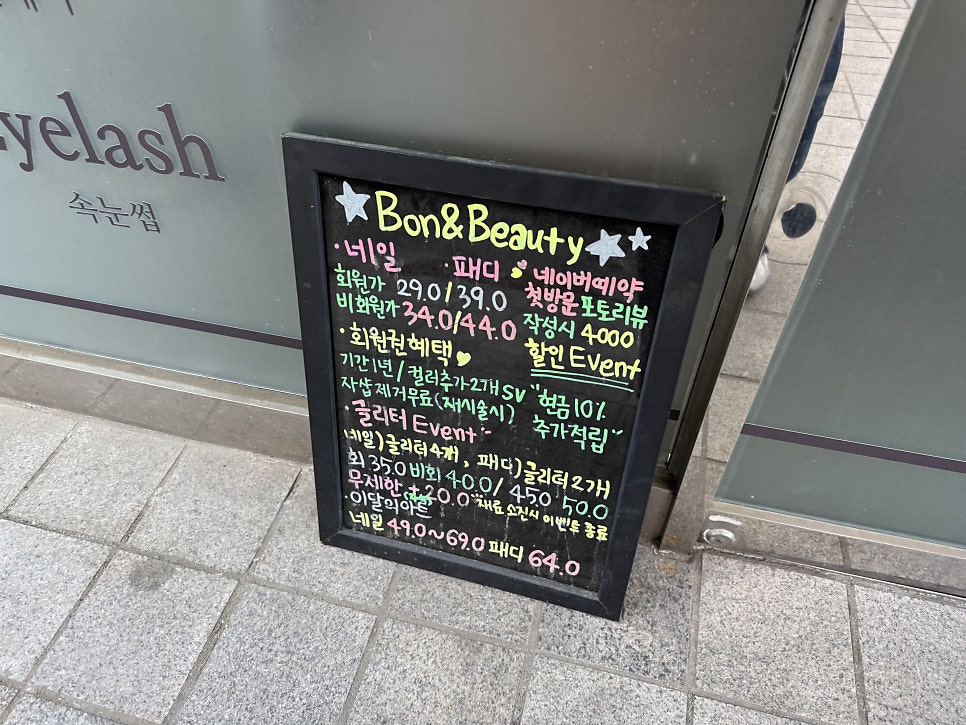 eyelash
속눈썹
Bon&Beauty
·네일 ·패디
회원가 29.0/39.0
비회원가 34.0/44.0
네이버예약
첫방문 포토리뷰
작성시 4000
할인 Event
·회원권혜택
기간1년/컬러추가2개 SV "현금10%
자샵제거무료(재시술시) 추가적립"
·글리터 Event
네일)글리터4개, 패디)글리터2개
회 35.0 비회 40.0/ 45.0 50.0
무제한 +20.0 "재료 소진시 이벤트 종료
·이달의아트
네일 49.0~69.0 패디 64.0